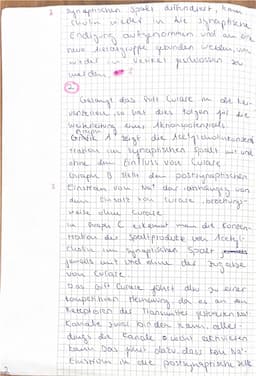 synaptischen Spalt diffundiert, kann
Cholin wieder in die synaptische
Endigung aufgenommen und an eine
neue Acetylgruppe gebunden werden, um
wieder in Vesikel geschlossen zu
werden.
2
Gelangt das Gift Curare an die
so hat dies folgen für die
Weiterleitung eines Aktionspotenzials.
Graph A zeigt die Acetylcholinkonzent
tration im synaptischen Spalt mit und
ohne den Einfluss von Curare
Graph B stellt den postsynaptischen
Einstrom von Na+ dar abhängig von
dem Einsatz von Curare, beziehungs-
weise ohne Curare
In Graph C erkennt man die Konzen-
tration der Spaltprodukte von Acetyl-
cholin im synaptischen Spalt
jeweils mit und ohne der Zugabe
von Curare.
Das Gift Curare führt also zu einer
kompetitiven Hemmung, da es an den
Rezeptoren der Transmitter gesteuerten Na+
Kanäle zwar binden kann, aller-
dings die Kanäle nicht aktivieren
kann. Das führt dazu, dass kein Na+
Einstrom in die postsynaptische Zelle